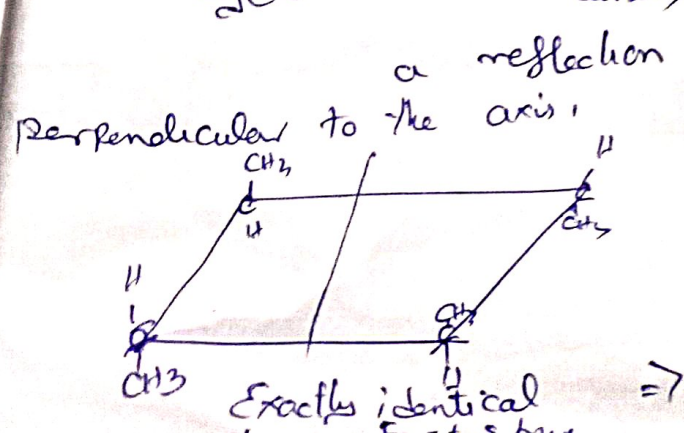 a reflection
perpendicular to the axis,
CH3 H
C C
H CH3
H CH3
C C
CH3 H
Exactly identical =>